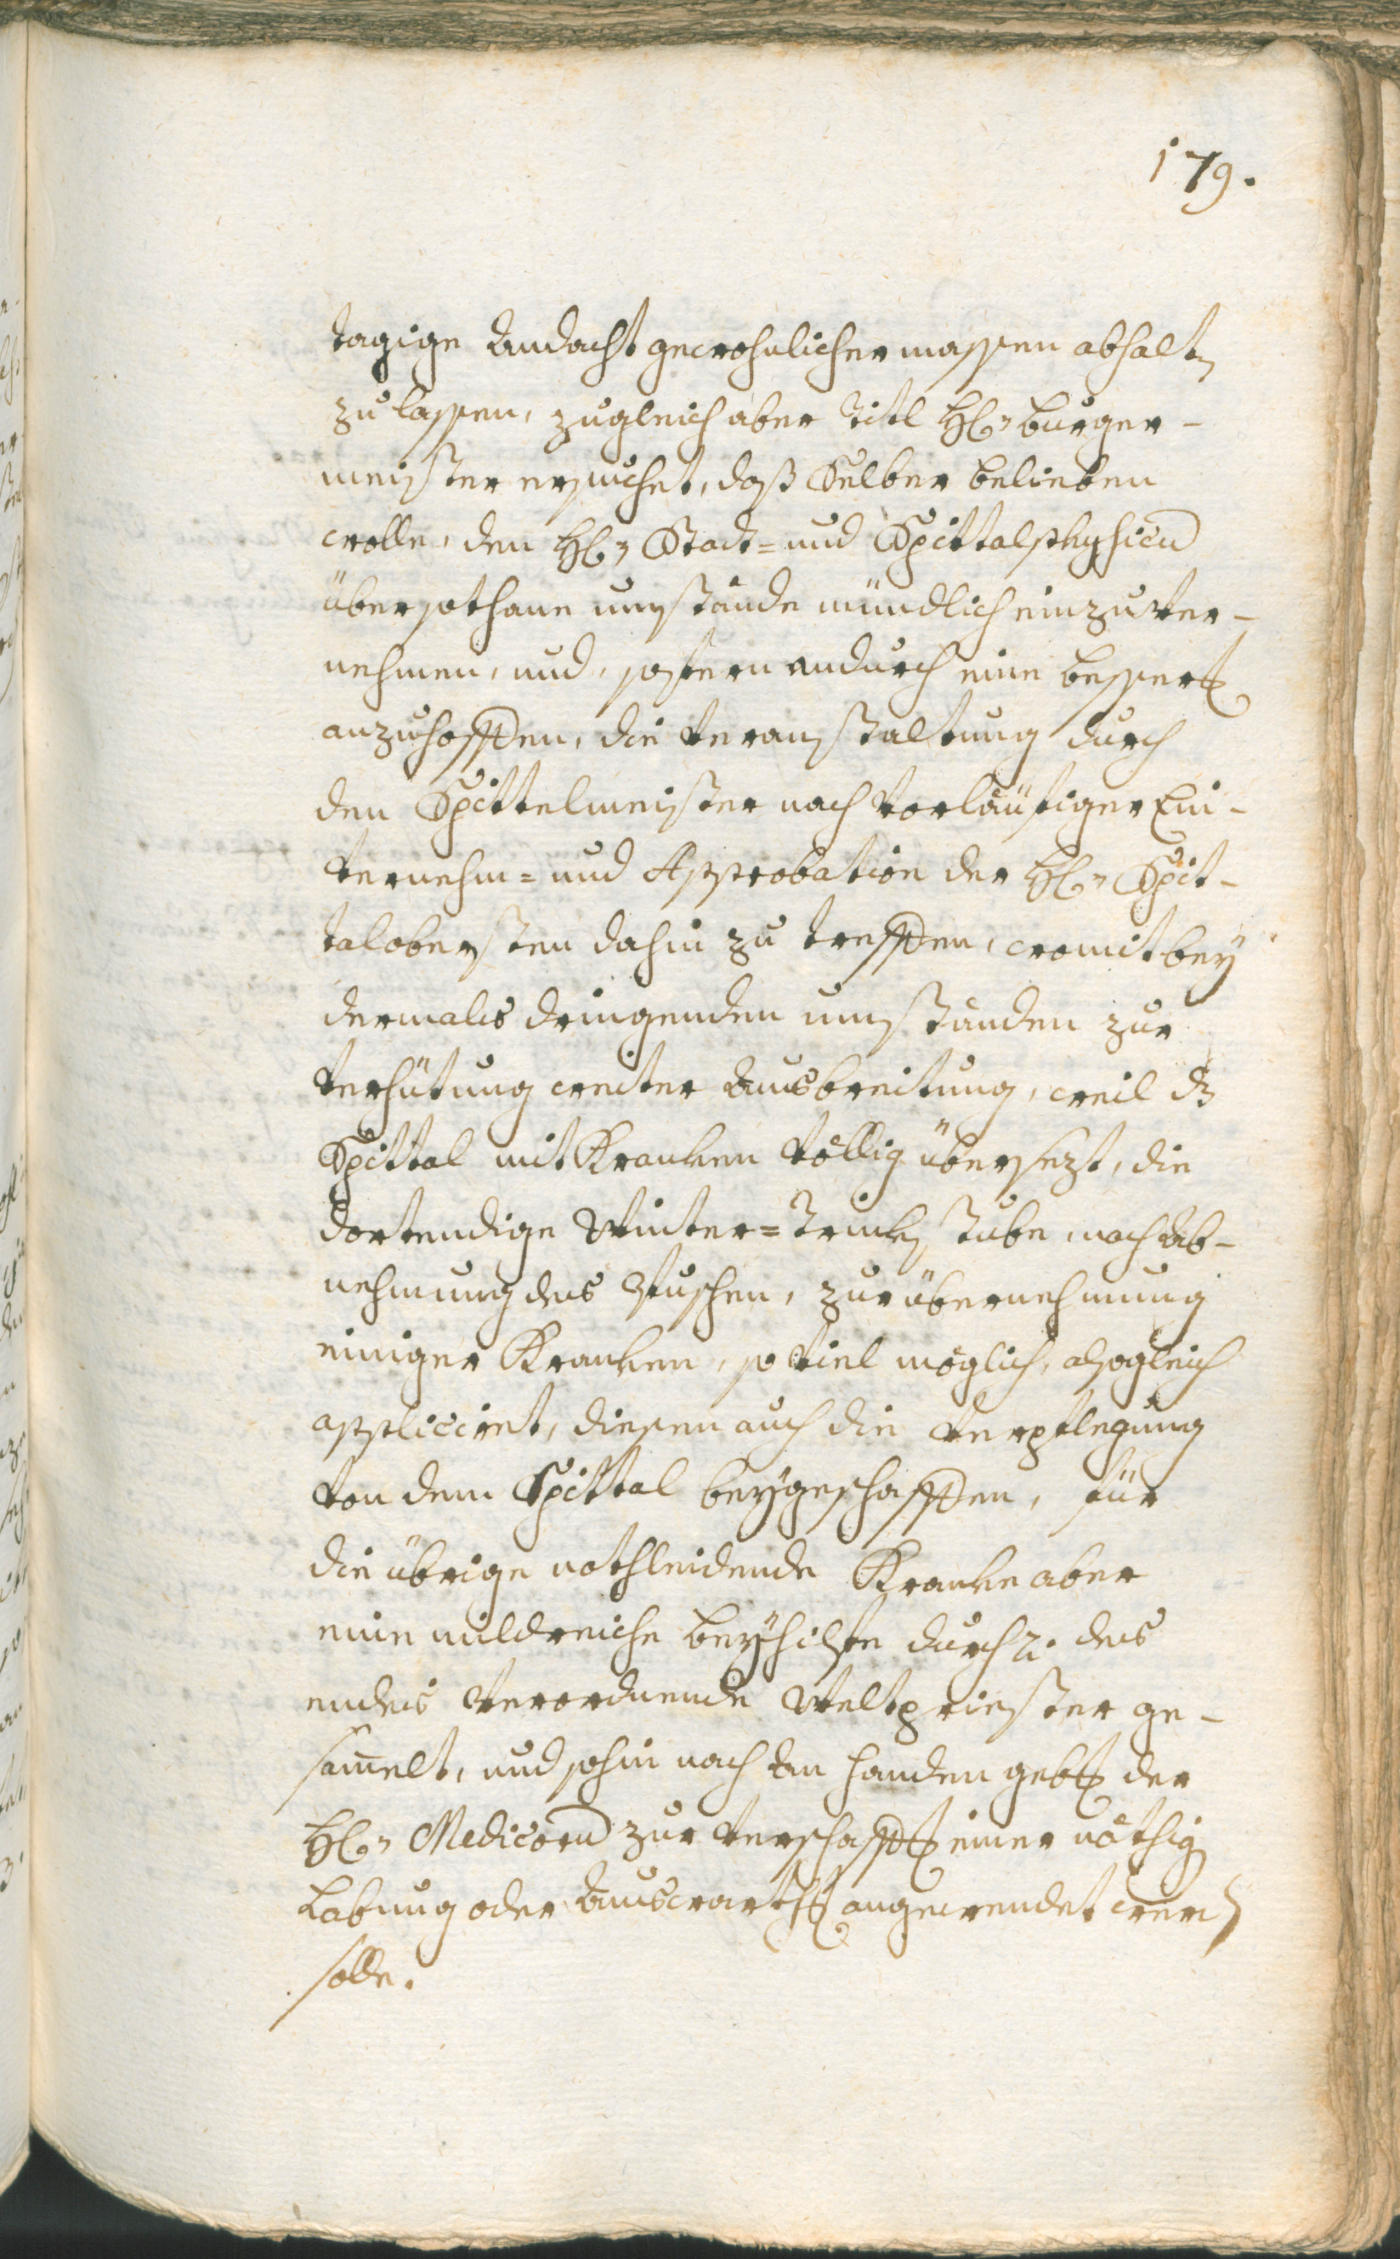 179.
tagige Andacht gewohnlichermassen abhalten
zu lassen, zugleich aber Titl H: Burger-
meister ersuchet, daß Selber belieben
wolle, den H: Stadt- und Spittalphysicum
über sothane umstände mündlich einzuver-
nehmen, und, sofern andurch eine besserung
anzuhoffen, die veranstaltung durch
den Spittelmeister nach vorläufiger Ein-
vernehm- und Approbation der H: Spit-
talobersten dahin zu treffen, womit bey
dermalis dringenden umständen zur
verhütung weiter Ausbreitung, weil dz
Spittal mit Kranken völlig übersezt, die
dortendige Winter-Trinkstube, nach Ab-
nehmung des, zur übernehmung
einiger Kranken, so viel möglich, alsogleich
appliciret, diesen auch die verpflegung
von dem Spittal beygeschaffen, für
die übrige nothleidende Kranke aber
eine mildreiche Beyhilfe durch 2. des
endes verordnende Weltpriester ge-
samelt, und sohin nach An handen gebung der
H: Medicorum zur verschaffung einer nöthigen
Labung oder Auswarthung angewendet werden
solle.